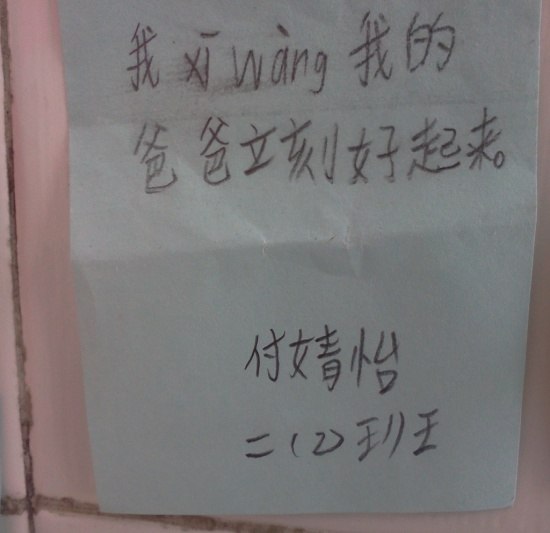 我xī wàng我的
爸爸立刻好起来。
付婧怡
二(2)班